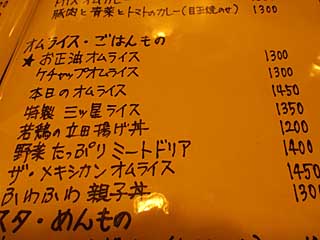 豚肉と青菜とトマトのカレー(目玉焼のせ) 1300
オムライス・ごはんもの
★お正油オムライス 1300
ケチャップオムライス 1300
本日のオムライス 1450
特製 三ッ星ライス 1350
若鶏の立田揚げ丼 1200
野菜たっぷりミートドリア 1400
ザ・メキシカンオムライス 1450
ふわふわ親子丼 1300
スタ・めんもの